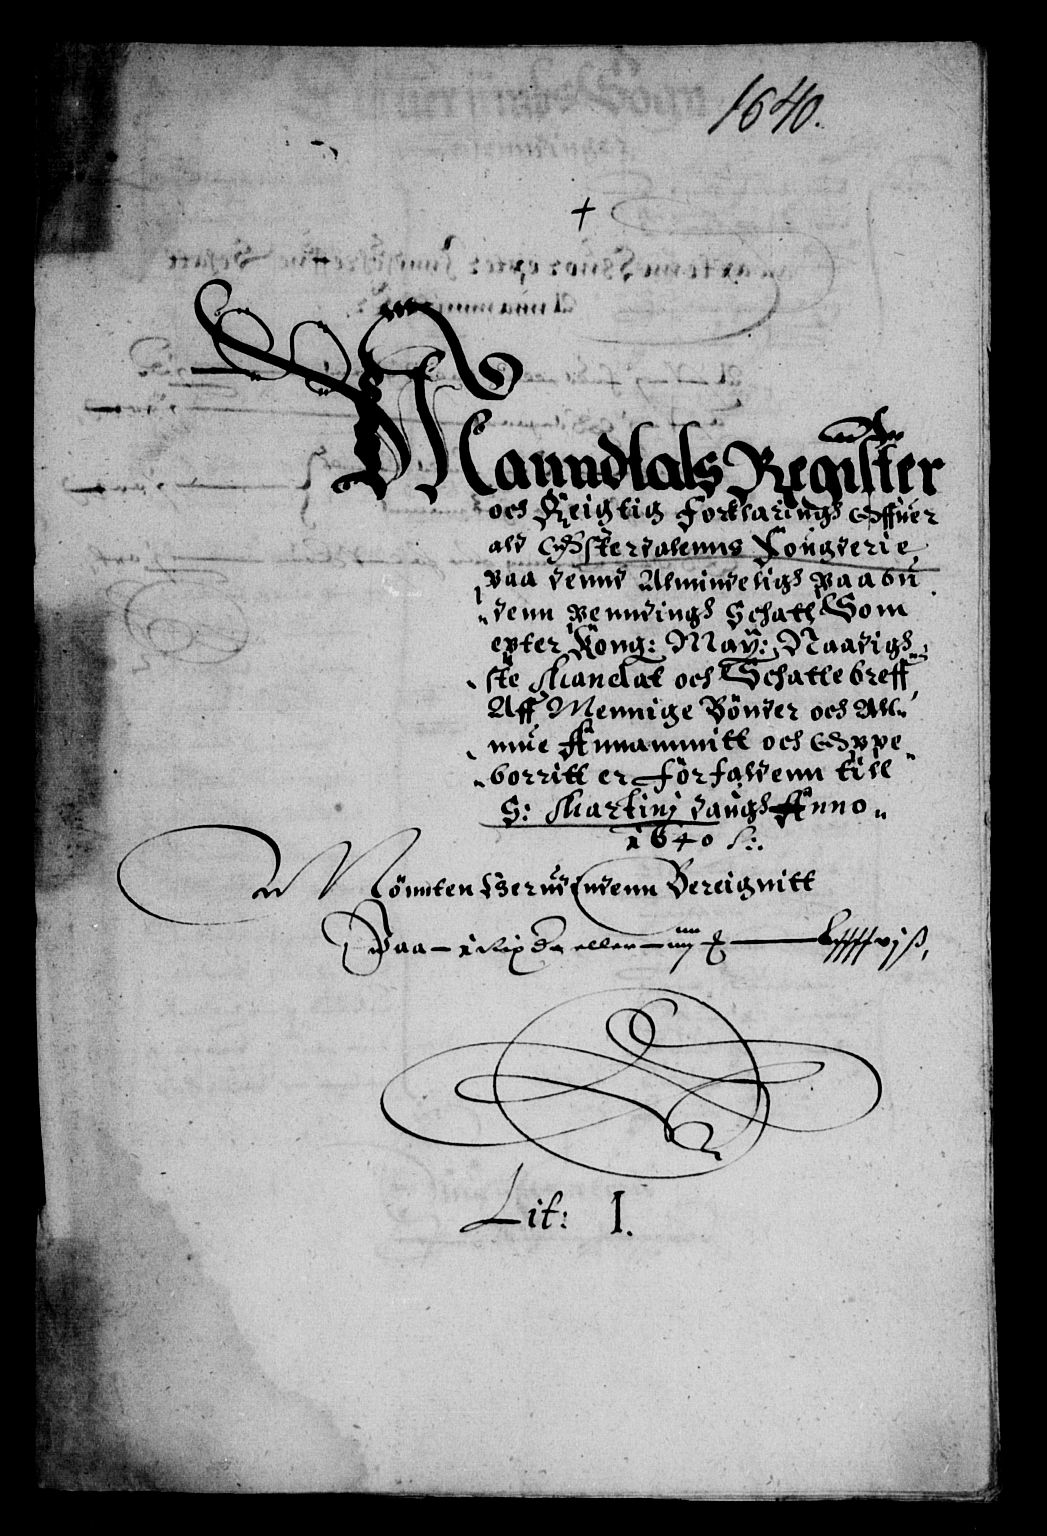 1640.
+
Manndtals Register
och Reigtig Forklarings Offuer
ald Østerdalenns Fougderie
paa dennd Almindeligs paabu
denn Penndings Schatt Som
epter Kong: May: Naadigs
ste Mandat och Schattebreff
Aff Mennige Bönder och All
mue Annammitt och Oppe
borritt er förfaldenn till
S: Martinj daugs Anno
1640 
Mönnten herudindenn Bereignitt
Paa 1 Rix dr eller
Lit: I.